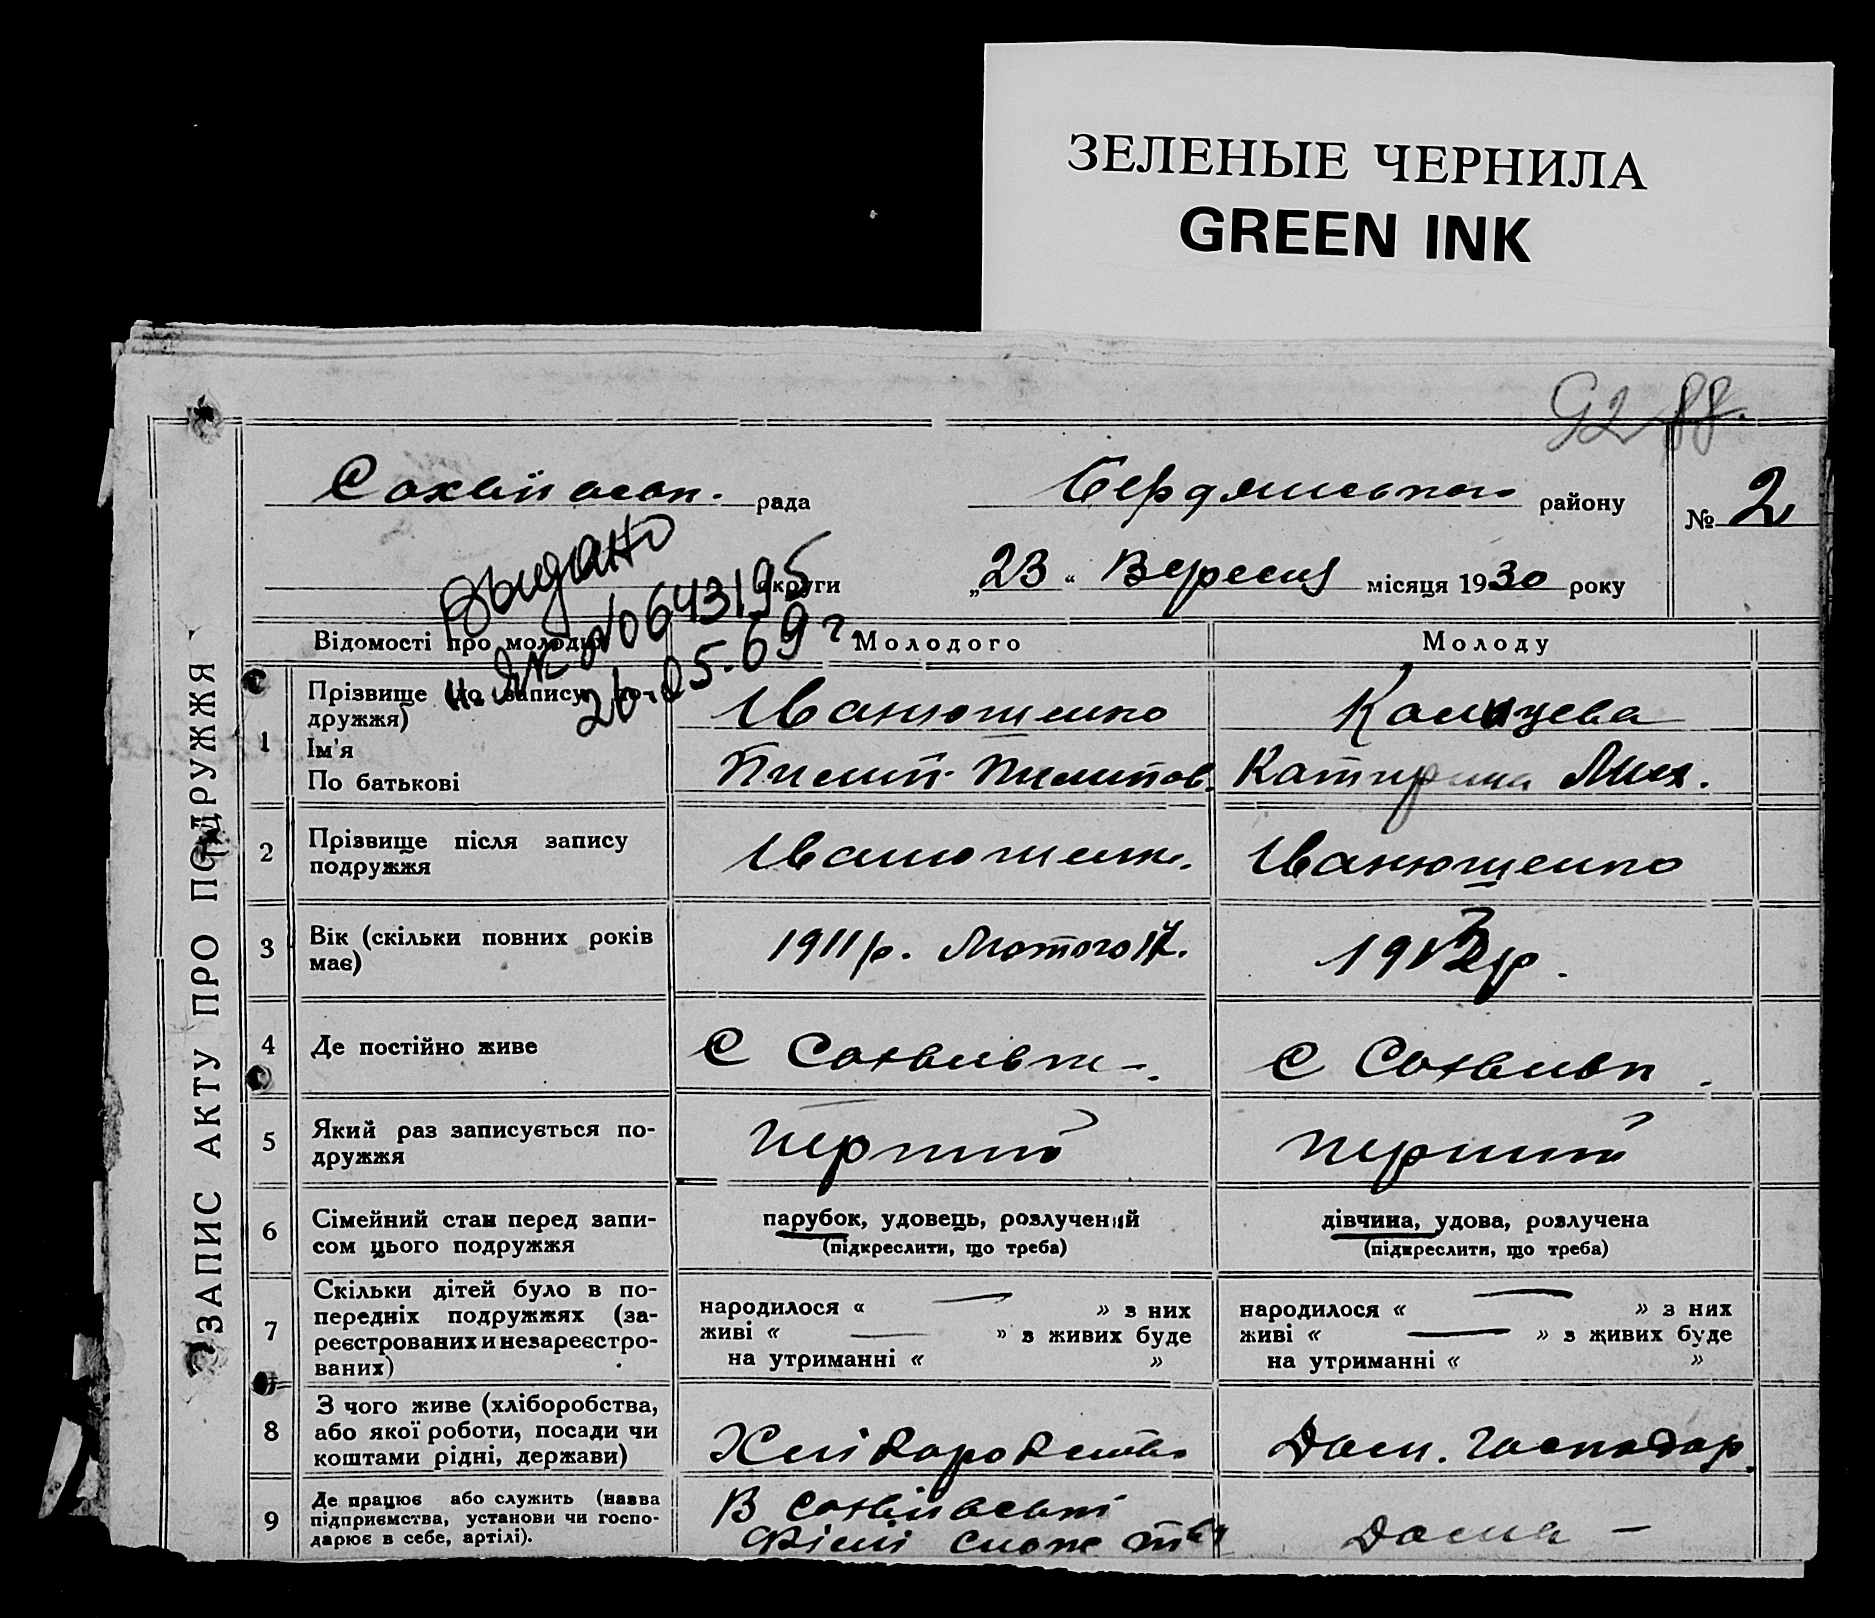 ЗЕЛЕНЫЕ ЧЕРНИЛА
GREEN INK
рада
Бердянського району
№ 2
округи
„23“ Вересня місяця 1930 року
Выдано
№ 0643195
26.05.69 г.
ЗАПИС АКТУ ПРО ПОДРУЖЖЯ
Відомості про молодих
Молодого
Молоду
1
Прізвище (до запису по-
дружжя)
Ім'я
По батькові
Іванющенко
Пилип Пилипов.
Катирина Мих.
2
Прізвище після запису
подружжя
Іванющенк.
Іванющенко
3
Вік (скільки повних років
має)
1911 р. Лютого 17.
4
Де постійно живе
С
С
5
Який раз записується по-
дружжя
перший
перший
6
Сімейний стан перед запи-
сом цього подружжя
парубок, удовець, розлучений
(підкреслити, що треба)
дівчина, удова, розлучена
(підкреслити, що треба)
7
Скільки дітей було в по-
передніх подружжях (за-
реєстрованих и незареєстро-
ваних)
народилося « — » з них
живі « — » з живих буде
на утриманні « »
народилося « — » з них
живі « — » з живих буде
на утриманні « »
8
З чого живе (хліборобства,
або якої роботи, посади чи
коштами рідні, держави)
Хліборобство
Дом. господар.
9
Де працює або служить (назва
підприємства, установи чи госпо-
дарює в себе, артілі).
В
Філії Спож т-ва
Дома —